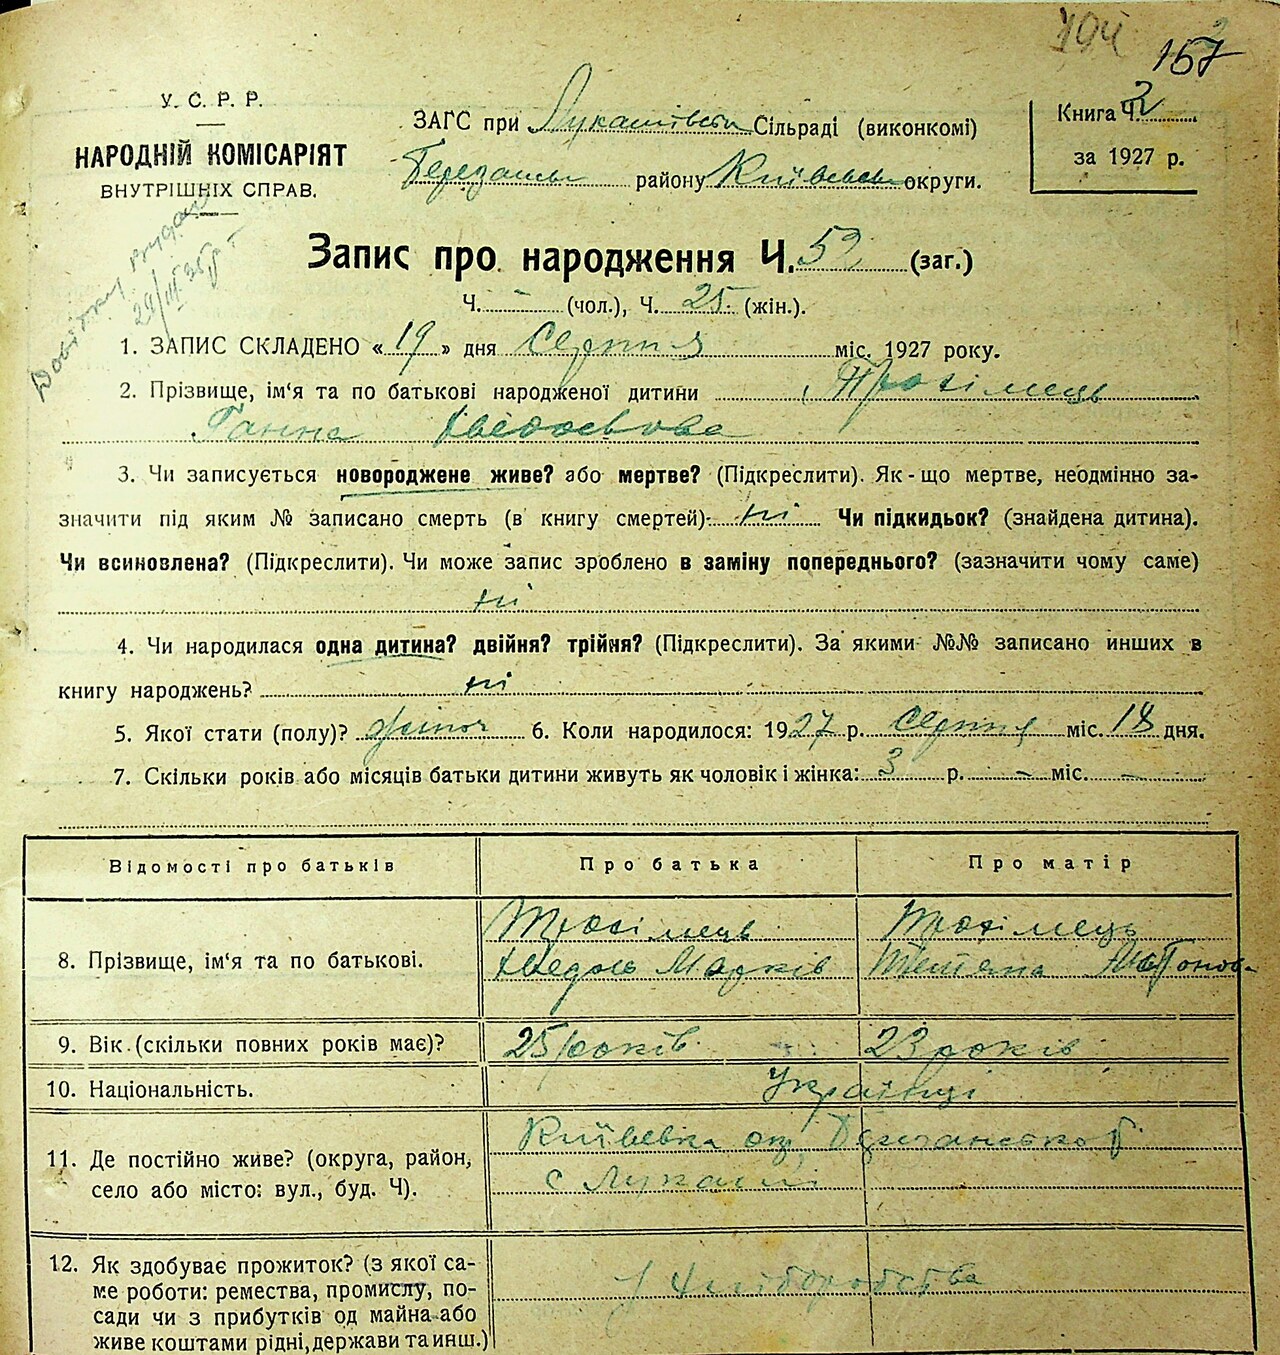 194
167
У. С. Р. Р.
НАРОДНІЙ КОМІСАРІЯТ
ВНУТРІШНІХ СПРАВ.
ЗАГС при Лукашівській Сільраді (виконкомі)
району Київської округи.
Книга Ч. 2
за 1927 р.
Довідку видано
29/III 35 р
Запис про народження Ч. 52 (заг.)
Ч. - (чол.), Ч. 25 (жін.).
1. ЗАПИС СКЛАДЕНО «19» дня Серпня міс. 1927 року.
2. Прізвище, ім‘я та по батькові народженої дитини Трохімець
Ганна
3. Чи записується новороджене живе? або мертве? (Підкреслити). Як-що мертве, неодмінно за-
значити під яким № записано смерть (в книгу смертей) ні Чи підкидьок? (знайдена дитина).
Чи всиновлена? (Підкреслити). Чи може запис зроблено в заміну попереднього? (зазначити чому саме)
ні
4. Чи народилася одна дитина? двійня? трійня? (Підкреслити). За якими №№ записано инших в
книгу народжень? ні
5. Якої стати (полу)? жіноч 6. Коли народилося: 1927 р. Серпня міс. 18 дня.
7. Скільки років або місяців батьки дитини живуть як чоловік і жінка: 3 р. - міс. -
Відомості про батьків
Про батька
Про матір
8. Прізвище, ім‘я та по батькові.
Трохімець
Марків
Трохімець
Тетяна Антонов.
9. Вік (скільки повних років має)?
25 років
23 років
10. Національність.
Українці
11. Де постійно живе? (округа, район,
село або місто: вул., буд. Ч).
Київська ок,
с Лукаші
12. Як здобуває прожиток? (з якої са-
ме роботи: ремества, промислу, по-
сади чи з прибутків од майна або
живе коштами рідні, держави та инш.)
З Хліборобства